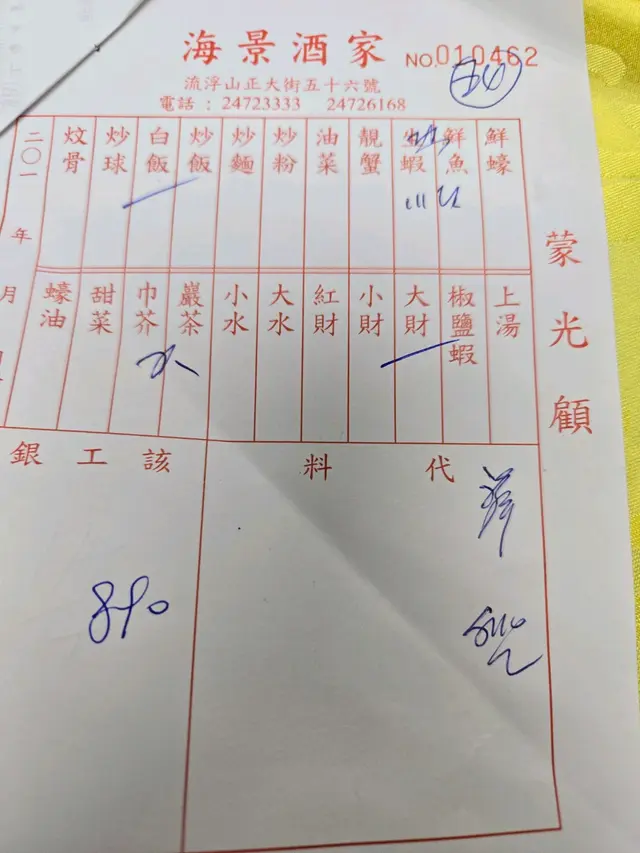 海景酒家 NO.010462
流浮山正大街五十六號
電話：24723333 24726168
鮮蠔
鮮魚
蝦
靚蟹
油菜
炒粉
炒麵
炒飯
白飯
炒球
炆骨
二〇一 年 月
上湯
椒鹽蝦
大財
小財
紅財
大水
小水
巖茶
巾芥
甜菜
蠔油
蒙光顧
代料
該工銀
890